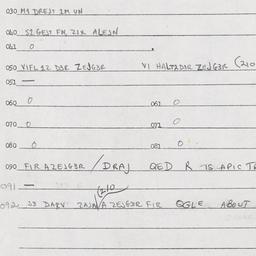 030 M9 DREJT IM UN
040 S2 GEST FM, ZIX ALEJN
041 0
050 VIFL IZ DER ZEJGER VI HALTADIR ZEJGER (210
051 —
060 0 061 0
070 0 071 0
080 0 081 0
090 FIR AZEJGER / DRAJ QED R 75 APIC TR
091 —
092 33 DARV (210 A ZEJGER FIR QGLE ABOUT